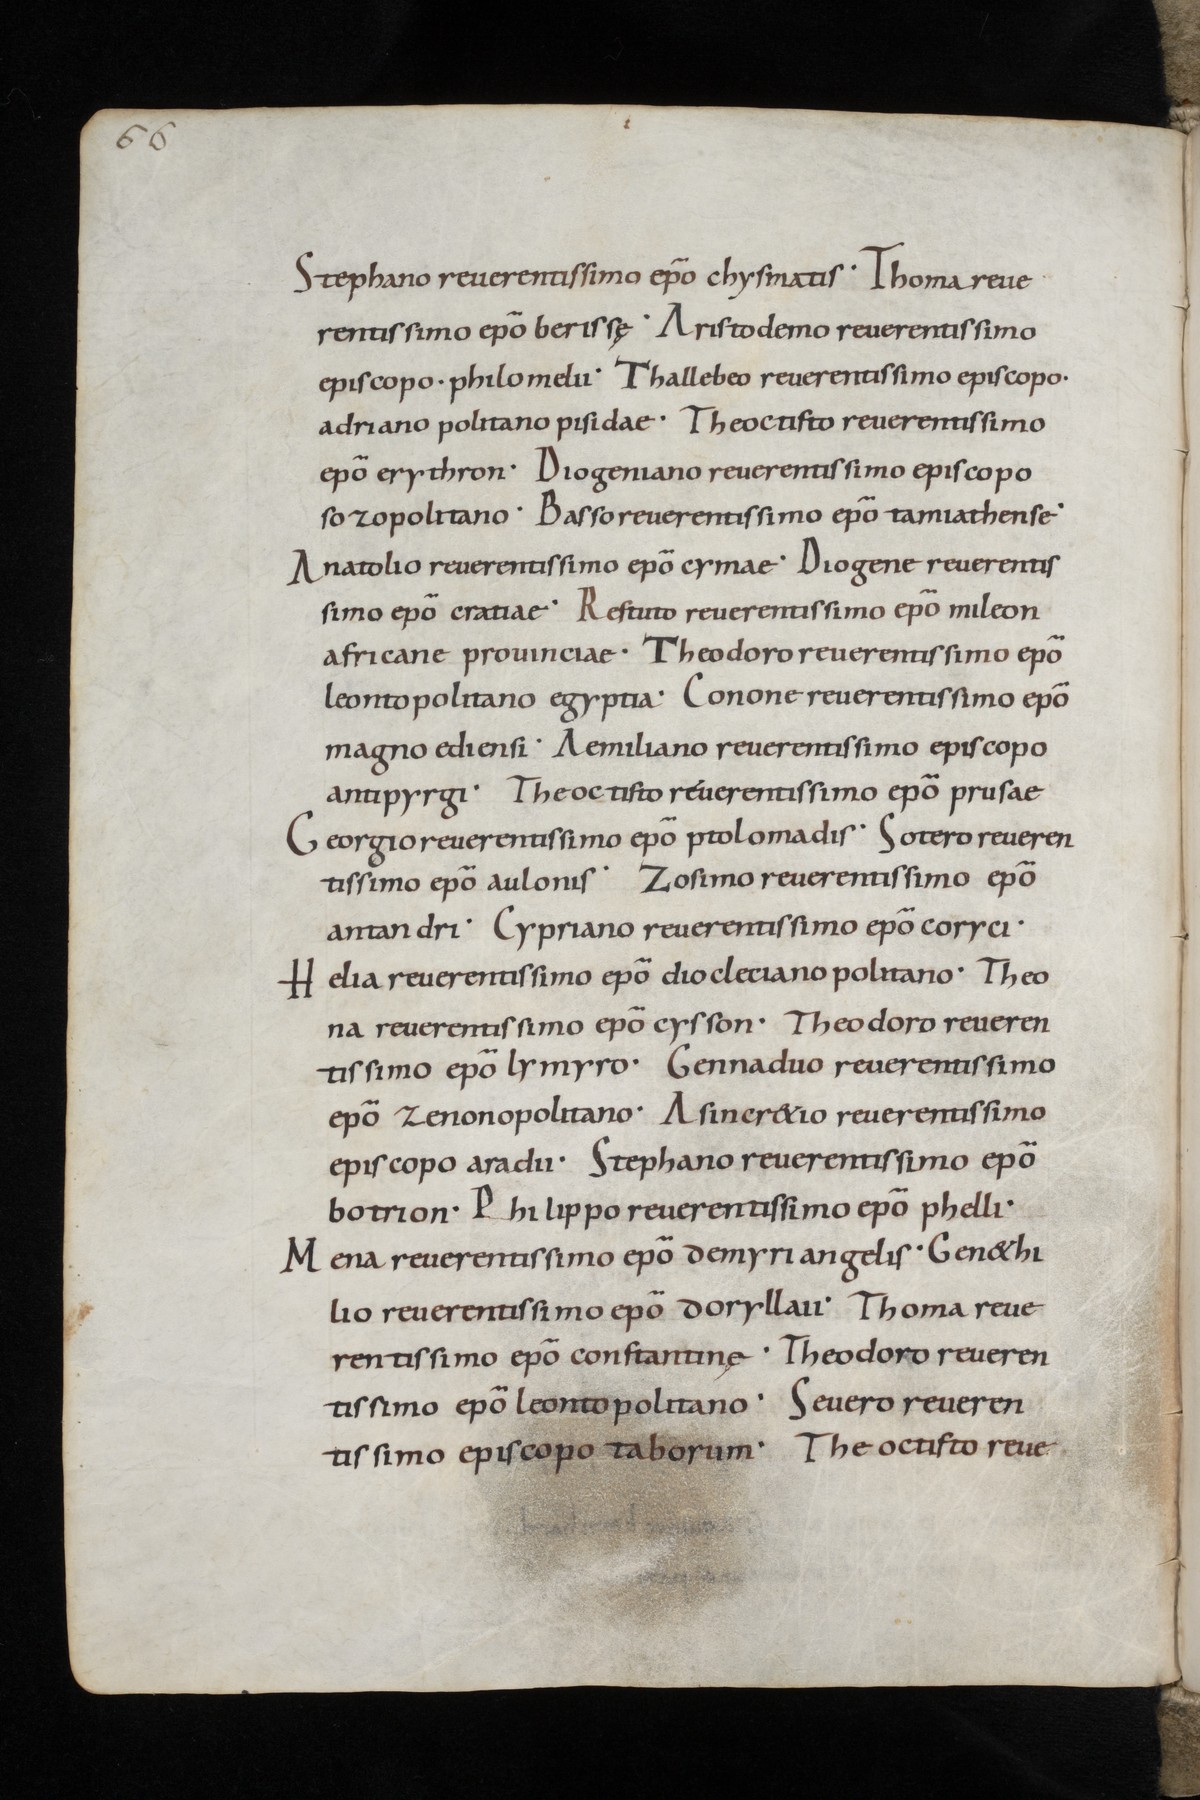 66
Stephano reuerentissimo ep̃o chysmatis · Thoma reue
rentissimo ep̃o berissę · Aristodemo reuerentissimo
episcopo · philomelii · Thallebeo reuerentissimo episcopo ·
adriano politano pisidae · Theoctisto reuerentissimo
ep̃o erythron · Diogeniano reuerentissimo episcopo
sozopolitano · Basso reuerentissimo ep̃o tamiathense ·
Anatolio reuerentissimo ep̃o cymae · Diogene reuerentis
simo ep̃o cratiae · Restuto reuerentissimo ep̃o mileon
africane prouinciae · Theodoro reuerentissimo ep̃o
leontopolitano egyptia · Conone reuerentissimo ep̃o
magno ediensi · Aemiliano reuerentissimo episcopo
antipyrgi · Theoctisto reuerentissimo ep̃o prusae
Georgio reuerentissimo ep̃o ptolomadis · Sotero reueren
tissimo ep̃o aulonis · Zosimo reuerentissimo ep̃o
antandri · Cypriano reuerentissimo ep̃o coryci ·
Helia reuerentissimo ep̃o diocleciano politano · Theo
na reuerentissimo ep̃o cysson · Theodoro reueren
tissimo ep̃o lymyro · Gennaduo reuerentissimo
ep̃o zenonopolitano · Asincr&io reuerentissimo
episcopo aradii · Stephano reuerentissimo ep̃o
botrion · Philippo reuerentissimo ep̃o phelli ·
Mena reuerentissimo ep̃o demyri angelis · Gen&hi
lio reuerentissimo ep̃o doryllaii · Thoma reue
rentissimo ep̃o constantinę · Theodoro reueren
tissimo ep̃o leontopolitano · Seuero reueren
tissimo episcopo taborum · Theoctisto reue